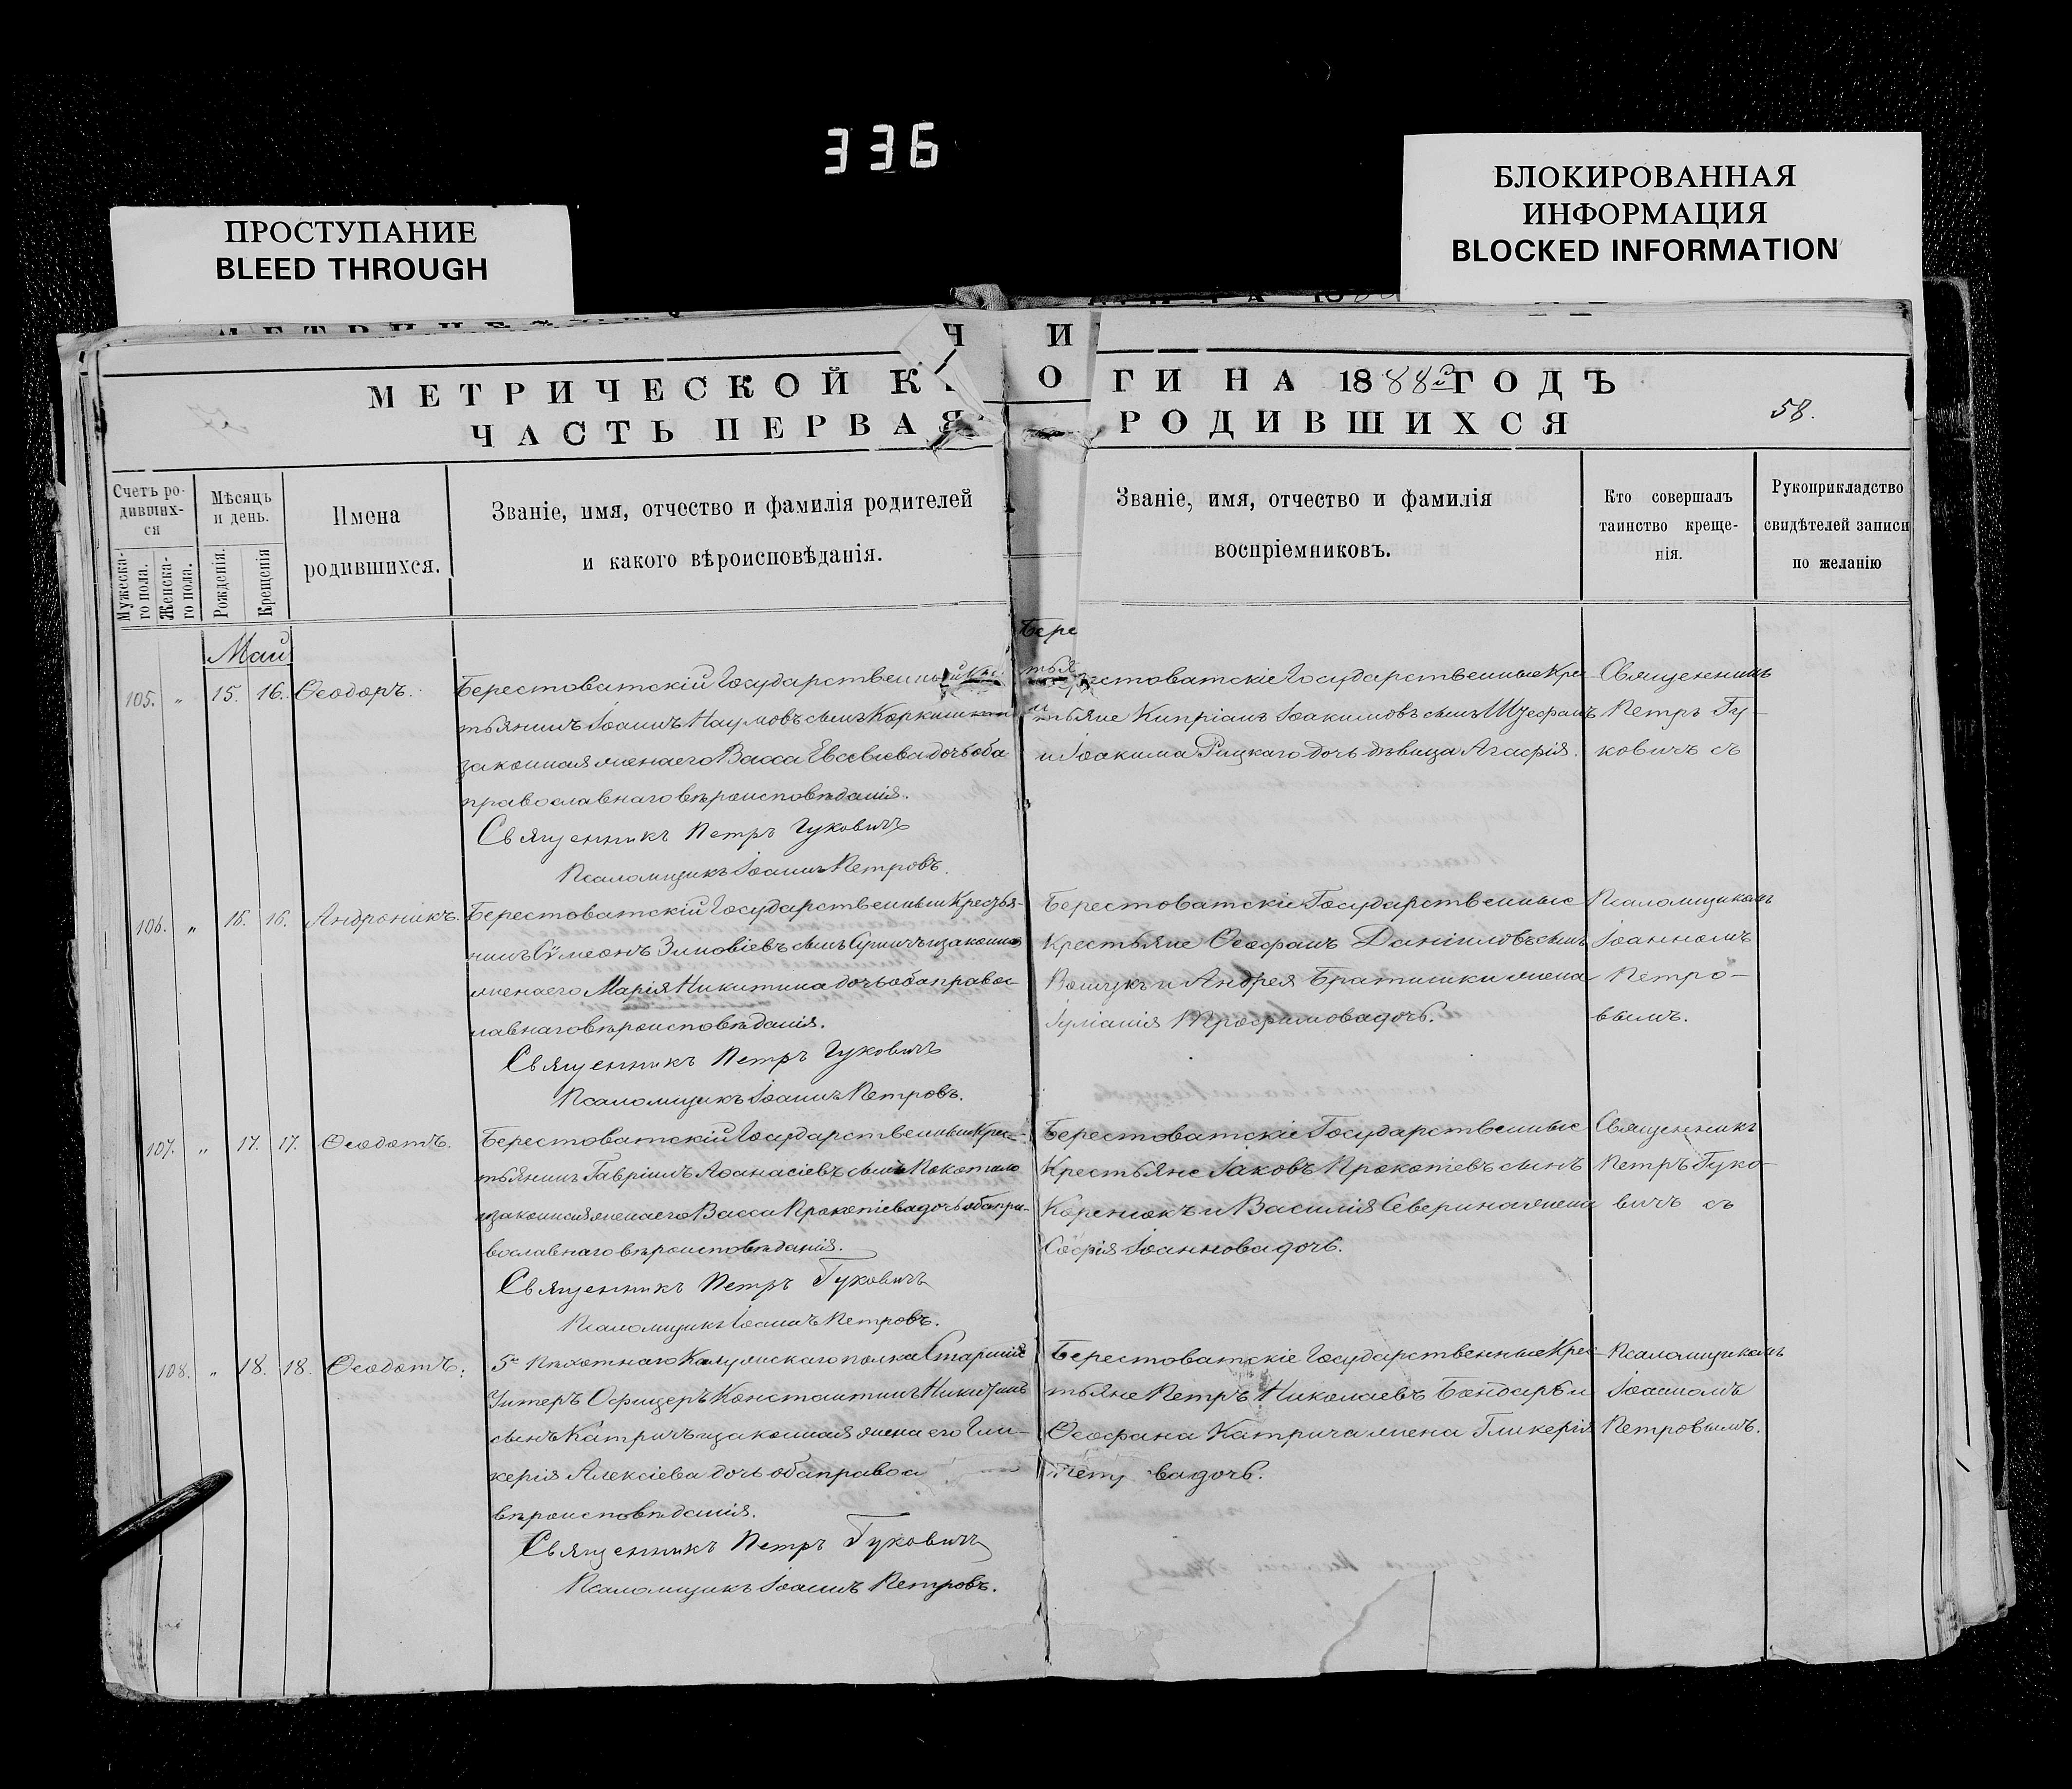 336
ПРОСТУПАНИЕ
BLEED THROUGH
БЛОКИРОВАННАЯ
ИНФОРМАЦИЯ
BLOCKED INFORMATION
Ч И
МЕТРИЧЕСКОЙ К О ГИ НА 1888й ГОДЪ
ЧАСТЬ ПЕРВАЯ РОДИВШИХСЯ
58.
Счетъ ро-
дивших-
ся
Мужеска-
го пола.
Женска-
го пола.
Мѣсяцъ
и день.
Рожденія.
Крещенія
Имена
родившихся.
Званіе, имя, отчество и фамилія родителей
и какого вѣроисповѣданія.
Званіе, имя, отчество и фамилія
воспріемниковъ.
Кто совершалъ
таинство креще-
нія.
Рукоприкладство
свидѣтелей записи
по желанію
Май
105. „ 15. 16. Ѳеодоръ.
Берестоватскій Государственный
тьянинъ Іоаннъ Наумовъ сынъ
законная жена его Васса Евсевіева дочь оба
православнаго вѣроисповѣданія.
Священникъ Петръ Гуковичъ
Псаломщикъ Іоаннъ Петровъ.
Бере
тья
рестоватскіе Государственные Кре-
тьяне Кипріанъ Іоакимовъ сынъ
и Іоакима Рицкаго дочь дѣвица Агафія.
Священникъ
Петръ Гу-
ковичъ съ
106. „ 16. 16. Андроникъ.
Берестоватскій Государственный Крестья-
нинъ Сѵмеонъ Зиновіевъ сынъ и законна
жена его Марія Никитина дочь оба правос-
лавнаго вѣроисповѣданія.
Священникъ Петръ Гуковичъ
Псаломщикъ Іоаннъ Петровъ.
Берестоватскіе Государственные
Крестьяне Ѳеофанъ Даніиловъ сынъ
и Андрея Братишки жена
Іуліанія Трофимова дочь.
Псаломщикомъ
Іоанномъ
Петро-
вымъ.
107. „ 17. 17. Ѳеодотъ.
Берестоватскій Государственный Крес-
тьянинъ Гавріилъ Аѳанасіевъ сынъ Покотило
и законная жена его Васса Прокопіева дочь оба пра-
вославнаго вѣроисповѣданія.
Священникъ Петръ Гуковичъ
Псаломщикъ Іоаннъ Петровъ.
Берестоватскіе Государственные
Крестьяне Іаковъ Прокопіевъ сынъ
Коренюкъ и Василія Северина жена
Софія Іоаннова дочь.
Священникъ
Петръ Гуко-
вичъ съ
108. „ 18. 18. Ѳеодотъ.
5го Пѣхотнаго Калужскаго полка Старшій
Унтеръ Офицеръ Константинъ Никитинъ
сынъ Катричъ и законная жена его Гли-
керія Алексіева дочь оба правос
вѣроисповѣданія.
Священникъ Петръ Гуковичъ
Псаломщикъ Іоаннъ Петровъ.
Берестоватскіе Государственные Крес-
тьяне Петръ Николаевъ Бондарь и
Ѳеофана Катрича жена Гликерія
Пет ва дочь.
Псаломщикомъ
Іоанномъ
Петровымъ.